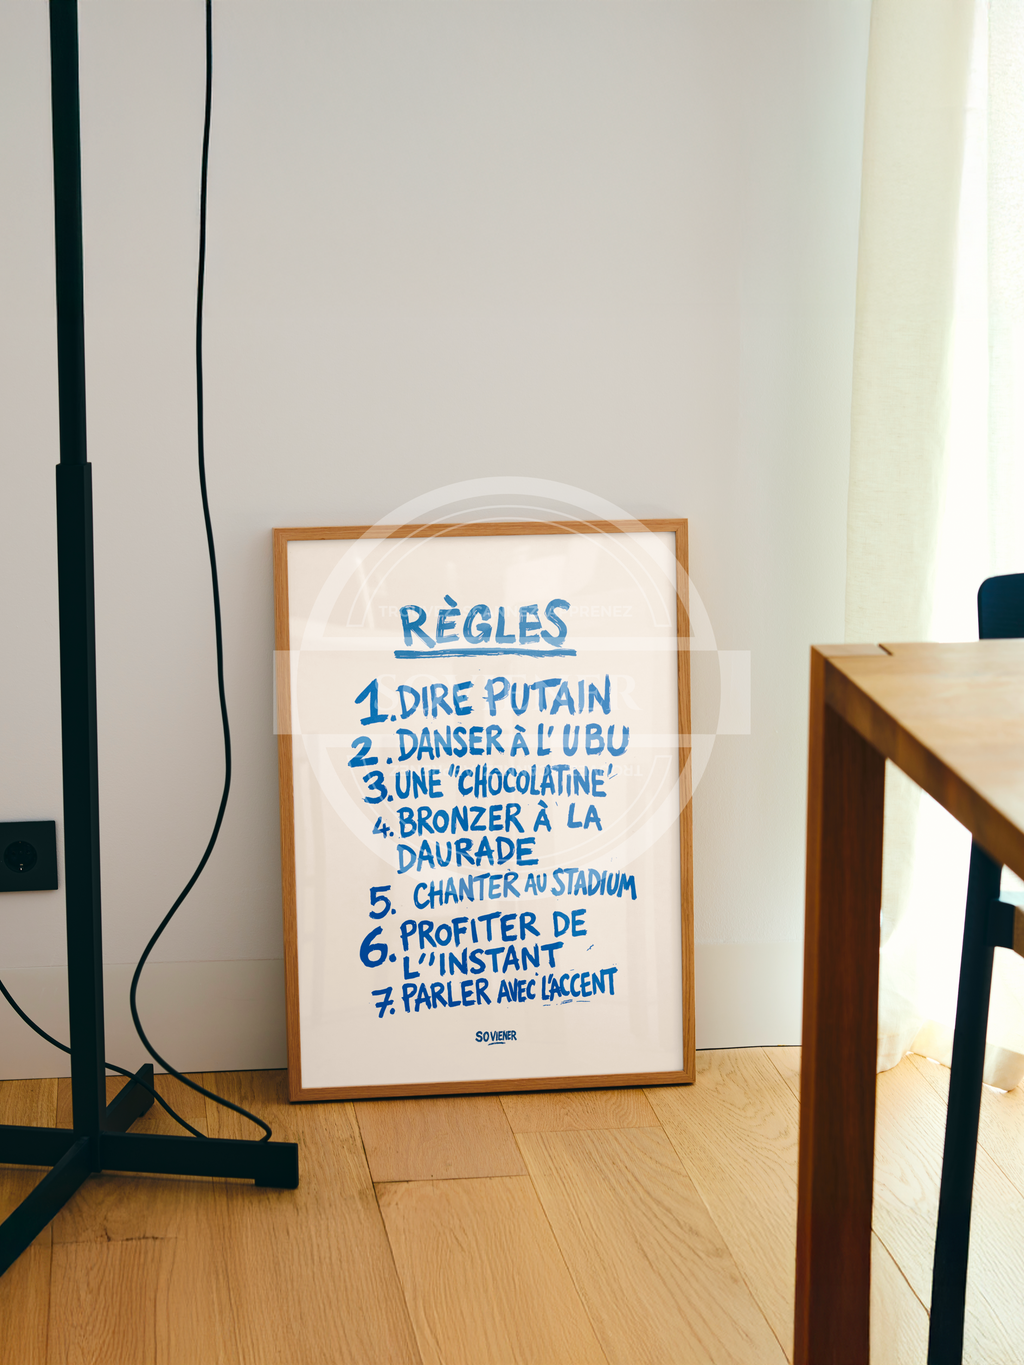 RÈGLES
1. DIRE PUTAIN
2. DANSER À L' UBU
3. UNE "CHOCOLATINE'
4. BRONZER À LA
DAURADE
5. CHANTER AU STADIUM
6. PROFITER DE
L''INSTANT
7. PARLER AVEC L'ACCENT
SOVIENER